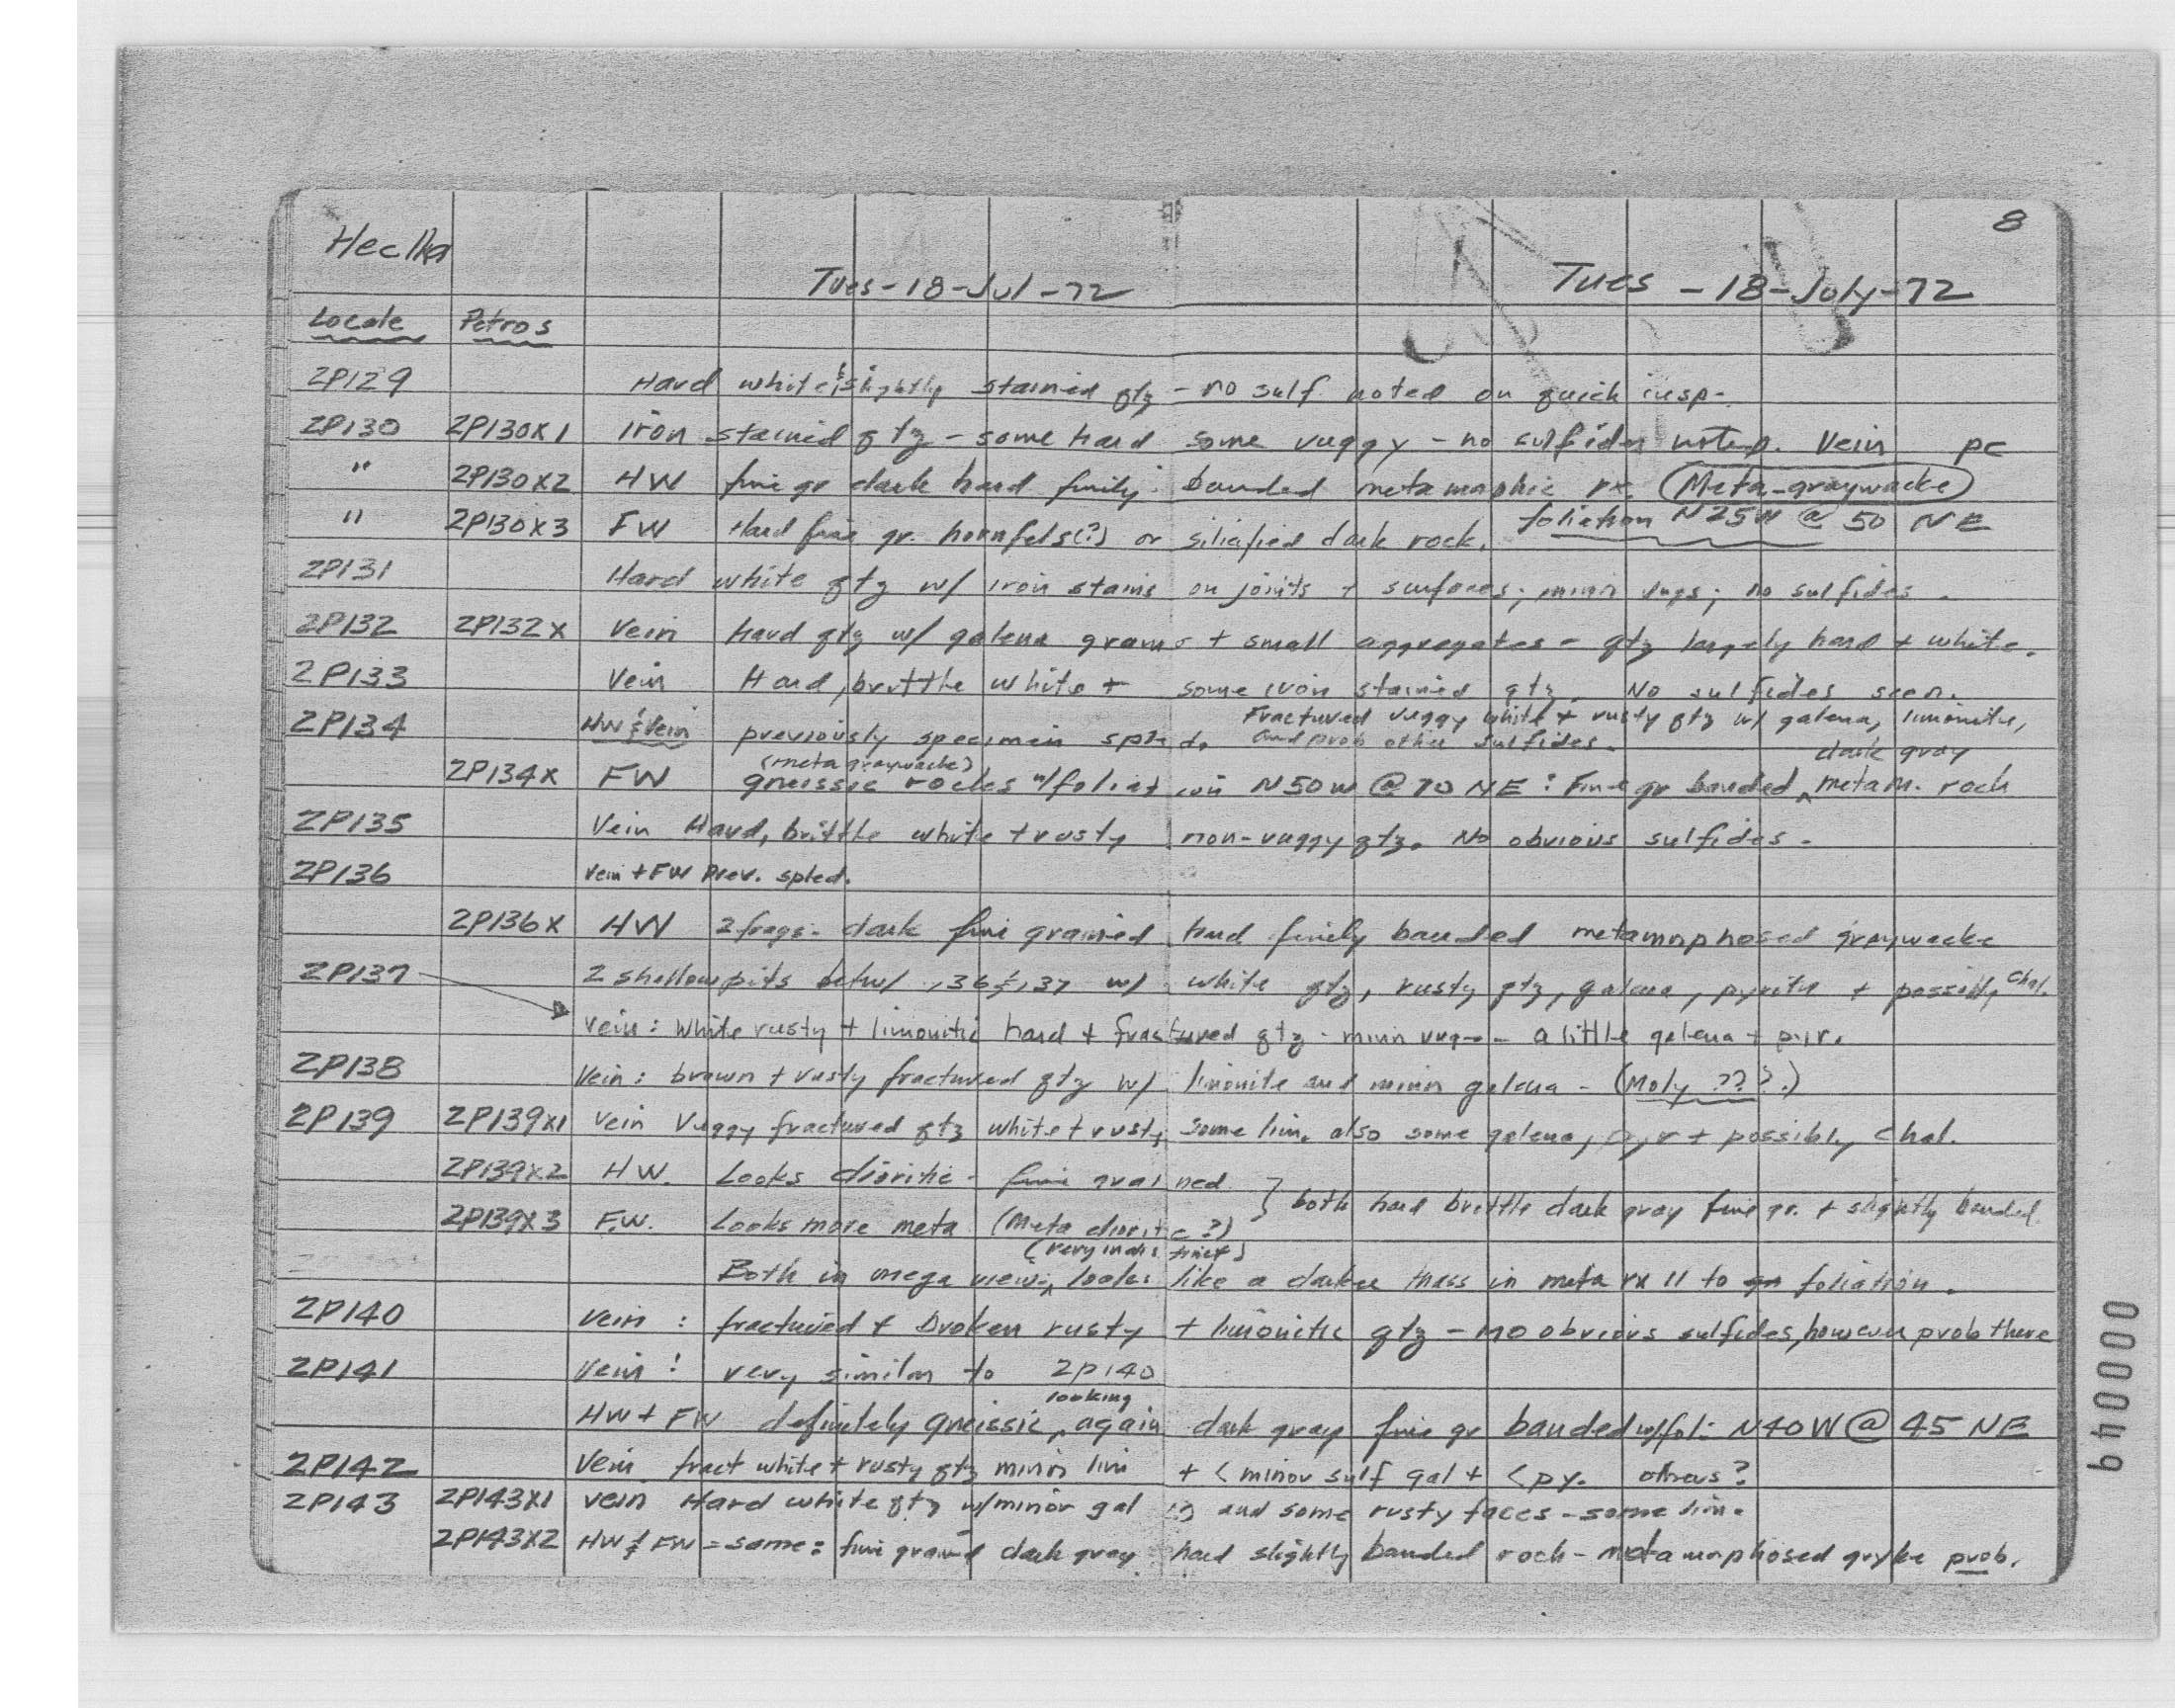 8
Heclka
Tues-18-Jul-72 Tues -18-July-72
Locale Petros
2P129 Hard white & slightly stained qtz - no sulf. noted on quick insp-
2P130 2P130X1 iron stained qtz - some hard some vuggy - no sulfides noted. Vein pc
" 2P130X2 HW fine gr dark hard finely banded metamorphic rx. Meta-graywacke
" 2P130X3 FW Hard fine gr. hornfels(?) or silicified dark rock. foliation N25W @ 50 NE
2P131 Hard white qtz w/ iron stains on joints + surfaces; minor vugs; no sulfides.
2P132 2P132X Vein hard qtz w/ galena grains + small aggregates - qtz largely hard + white.
2P133 Vein Hard, brittle white + some iron stained qtz. No sulfides seen.
2P134 HW & Vein previously specimen spled. Fractured vuggy white + rusty qtz w/ galena, limonite,
and prob other sulfides.
2P134X FW (meta graywacke) gneissic rocks w/foliation N50W @ 70 NE: Fine gr banded ^ dark gray metam. rock
2P135 Vein Hard, brittle white + rusty non-vuggy qtz. No obvious sulfides.
2P136 Vein + FW Prev. spled.
2P136X HW 2 frags- dark fine grained hard finely banded metamorphosed graywacke
2P137 2 shallow pits betw/ 136 & 137 w/ white qtz, rusty qtz, galena, pyrite + possibly chal.
Vein: White rusty + limonitic hard + fractured qtz - minor vugs - a little galena + pyr.
2P138 Vein: brown + rusty fractured qtz w/ limonite and minor galena - (Moly ???.)
2P139 2P139X1 Vein Vuggy fractured qtz white + rusty some lim. also some galena, pyr + possibly chal.
2P139X2 HW. Looks dioritic - fine grained
2P139X3 F.W. Looks more meta (Meta diorite?) } both hard brittle dark gray fine gr. + slightly banded.
(very indistinct)
Both in mega view ^ looks like a darker mass in meta rx || to foliation.
2P140 Vein: fractured + broken rusty + limonitic qtz - no obvious sulfides, however prob there
2P141 Vein: very similar to 2P140
HW + FW definitely gneissic ^ looking again dark gray fine gr banded w/fol: N40W @ 45 NE
2P142 Vein fract white + rusty qtz minor lim + < minor sulf gal + < py. others?
2P143 2P143X1 vein Hard white qtz w/minor gal and some rusty faces - some lim.
2P143X2 HW & FW = same: fine grained dark gray hard slightly banded rock - metamorphosed gryke prob.
000049